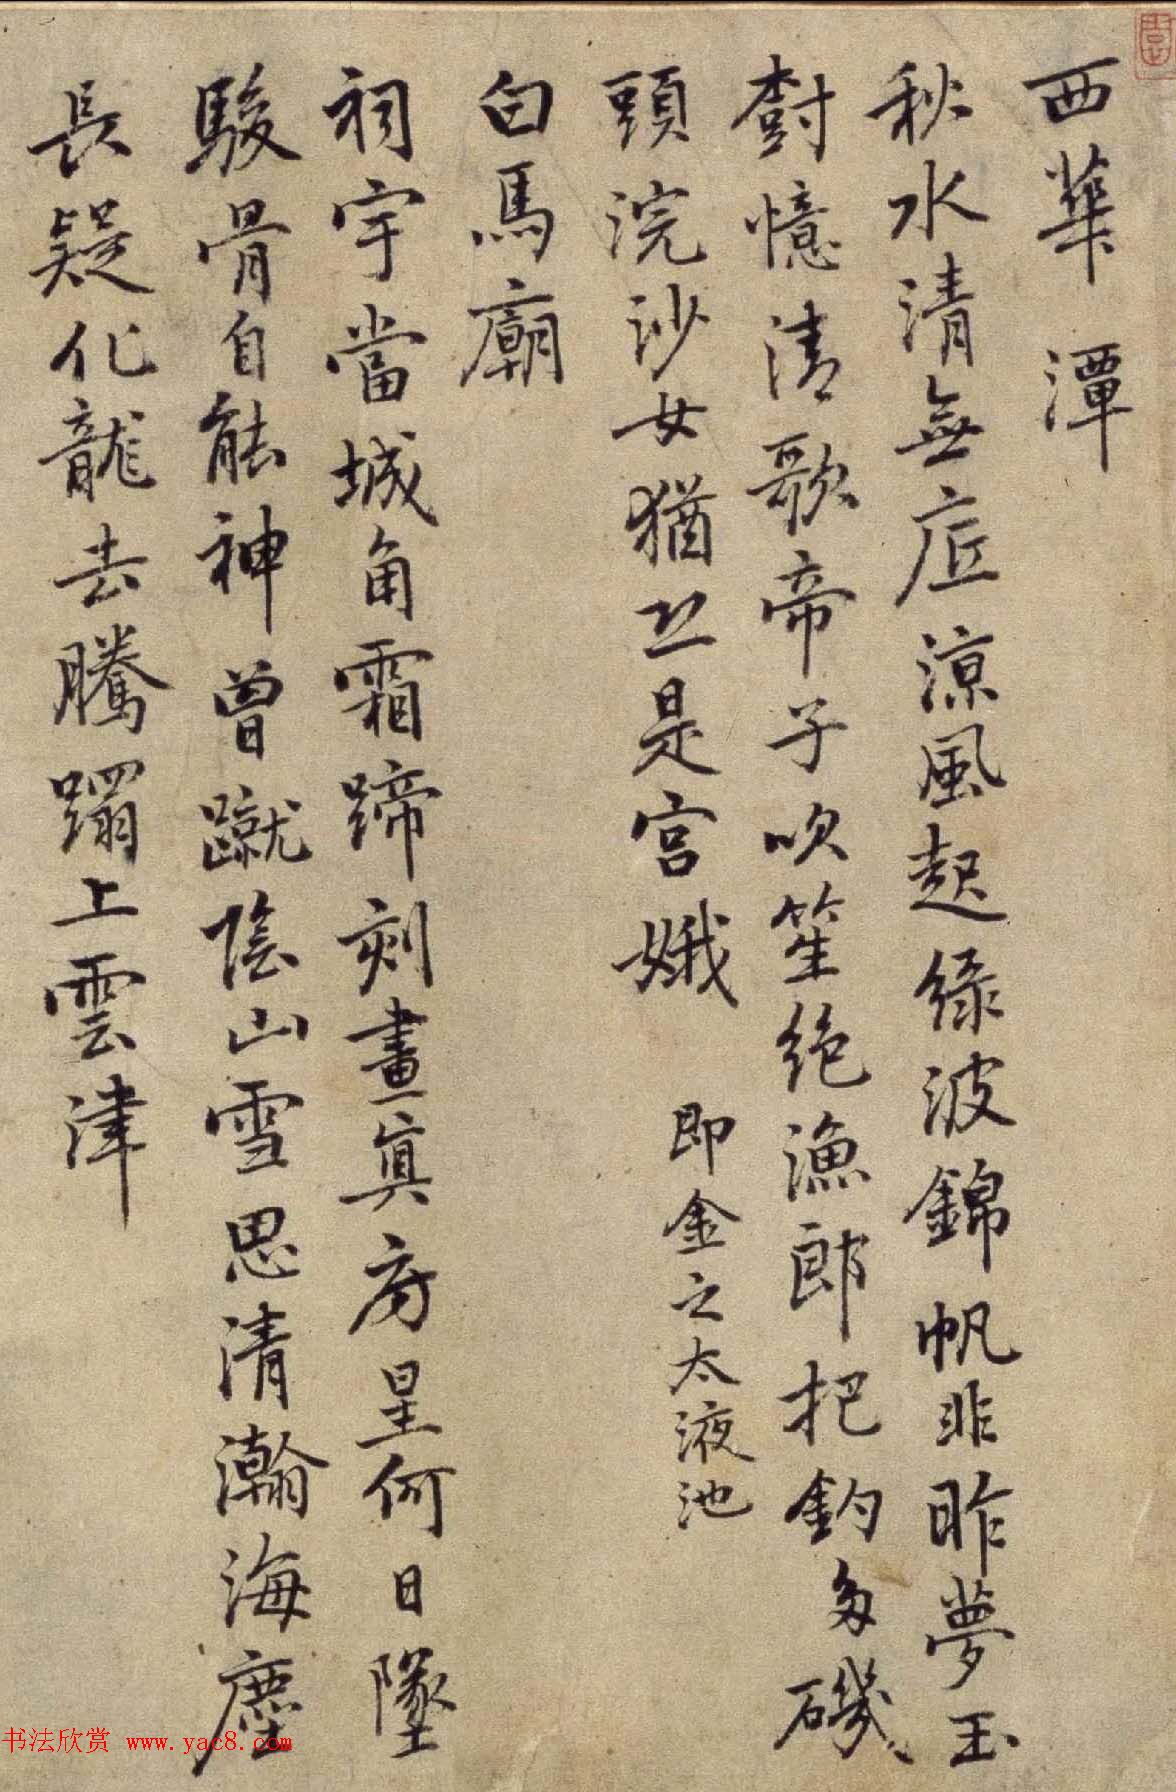 西華潭
秋水清無底涼風起綠波錦帆非昨夢玉
樹憶清歌帝子吹笙絶漁郎把釣多磯
頭浣沙女猶恐是宮娥 即金之太液池
白馬廟
祠宇當城角霜蹄刻畫真房星何日墜
駿骨自能神曾蹴陰山雪思清瀚海塵
長疑化龍去騰蹋上雲津
书法欣赏 www.yac8.com